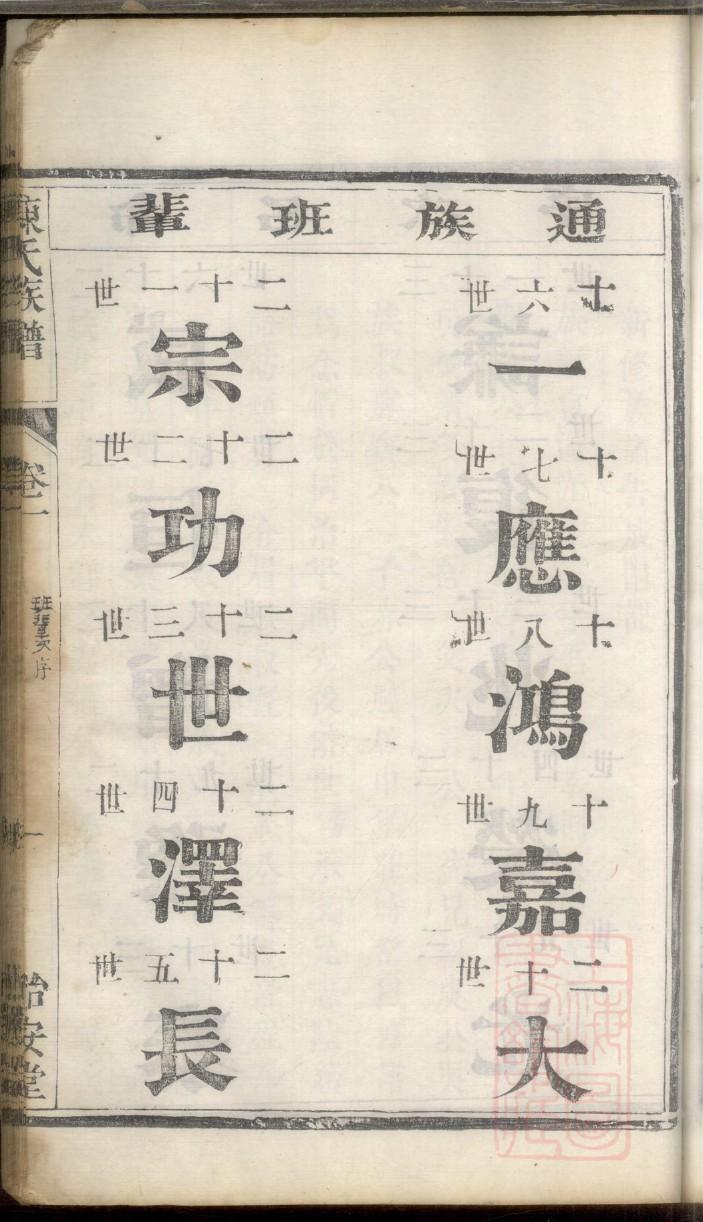 通族班輩
十六世
一
十七世
應
十八世
鴻
十九世
嘉
二十世
大
二十一世
宗
二十二世
功
二十三世
世
二十四世
澤
二十五世
長
陳氏族譜
卷一
班輩次序
一
怡安堂